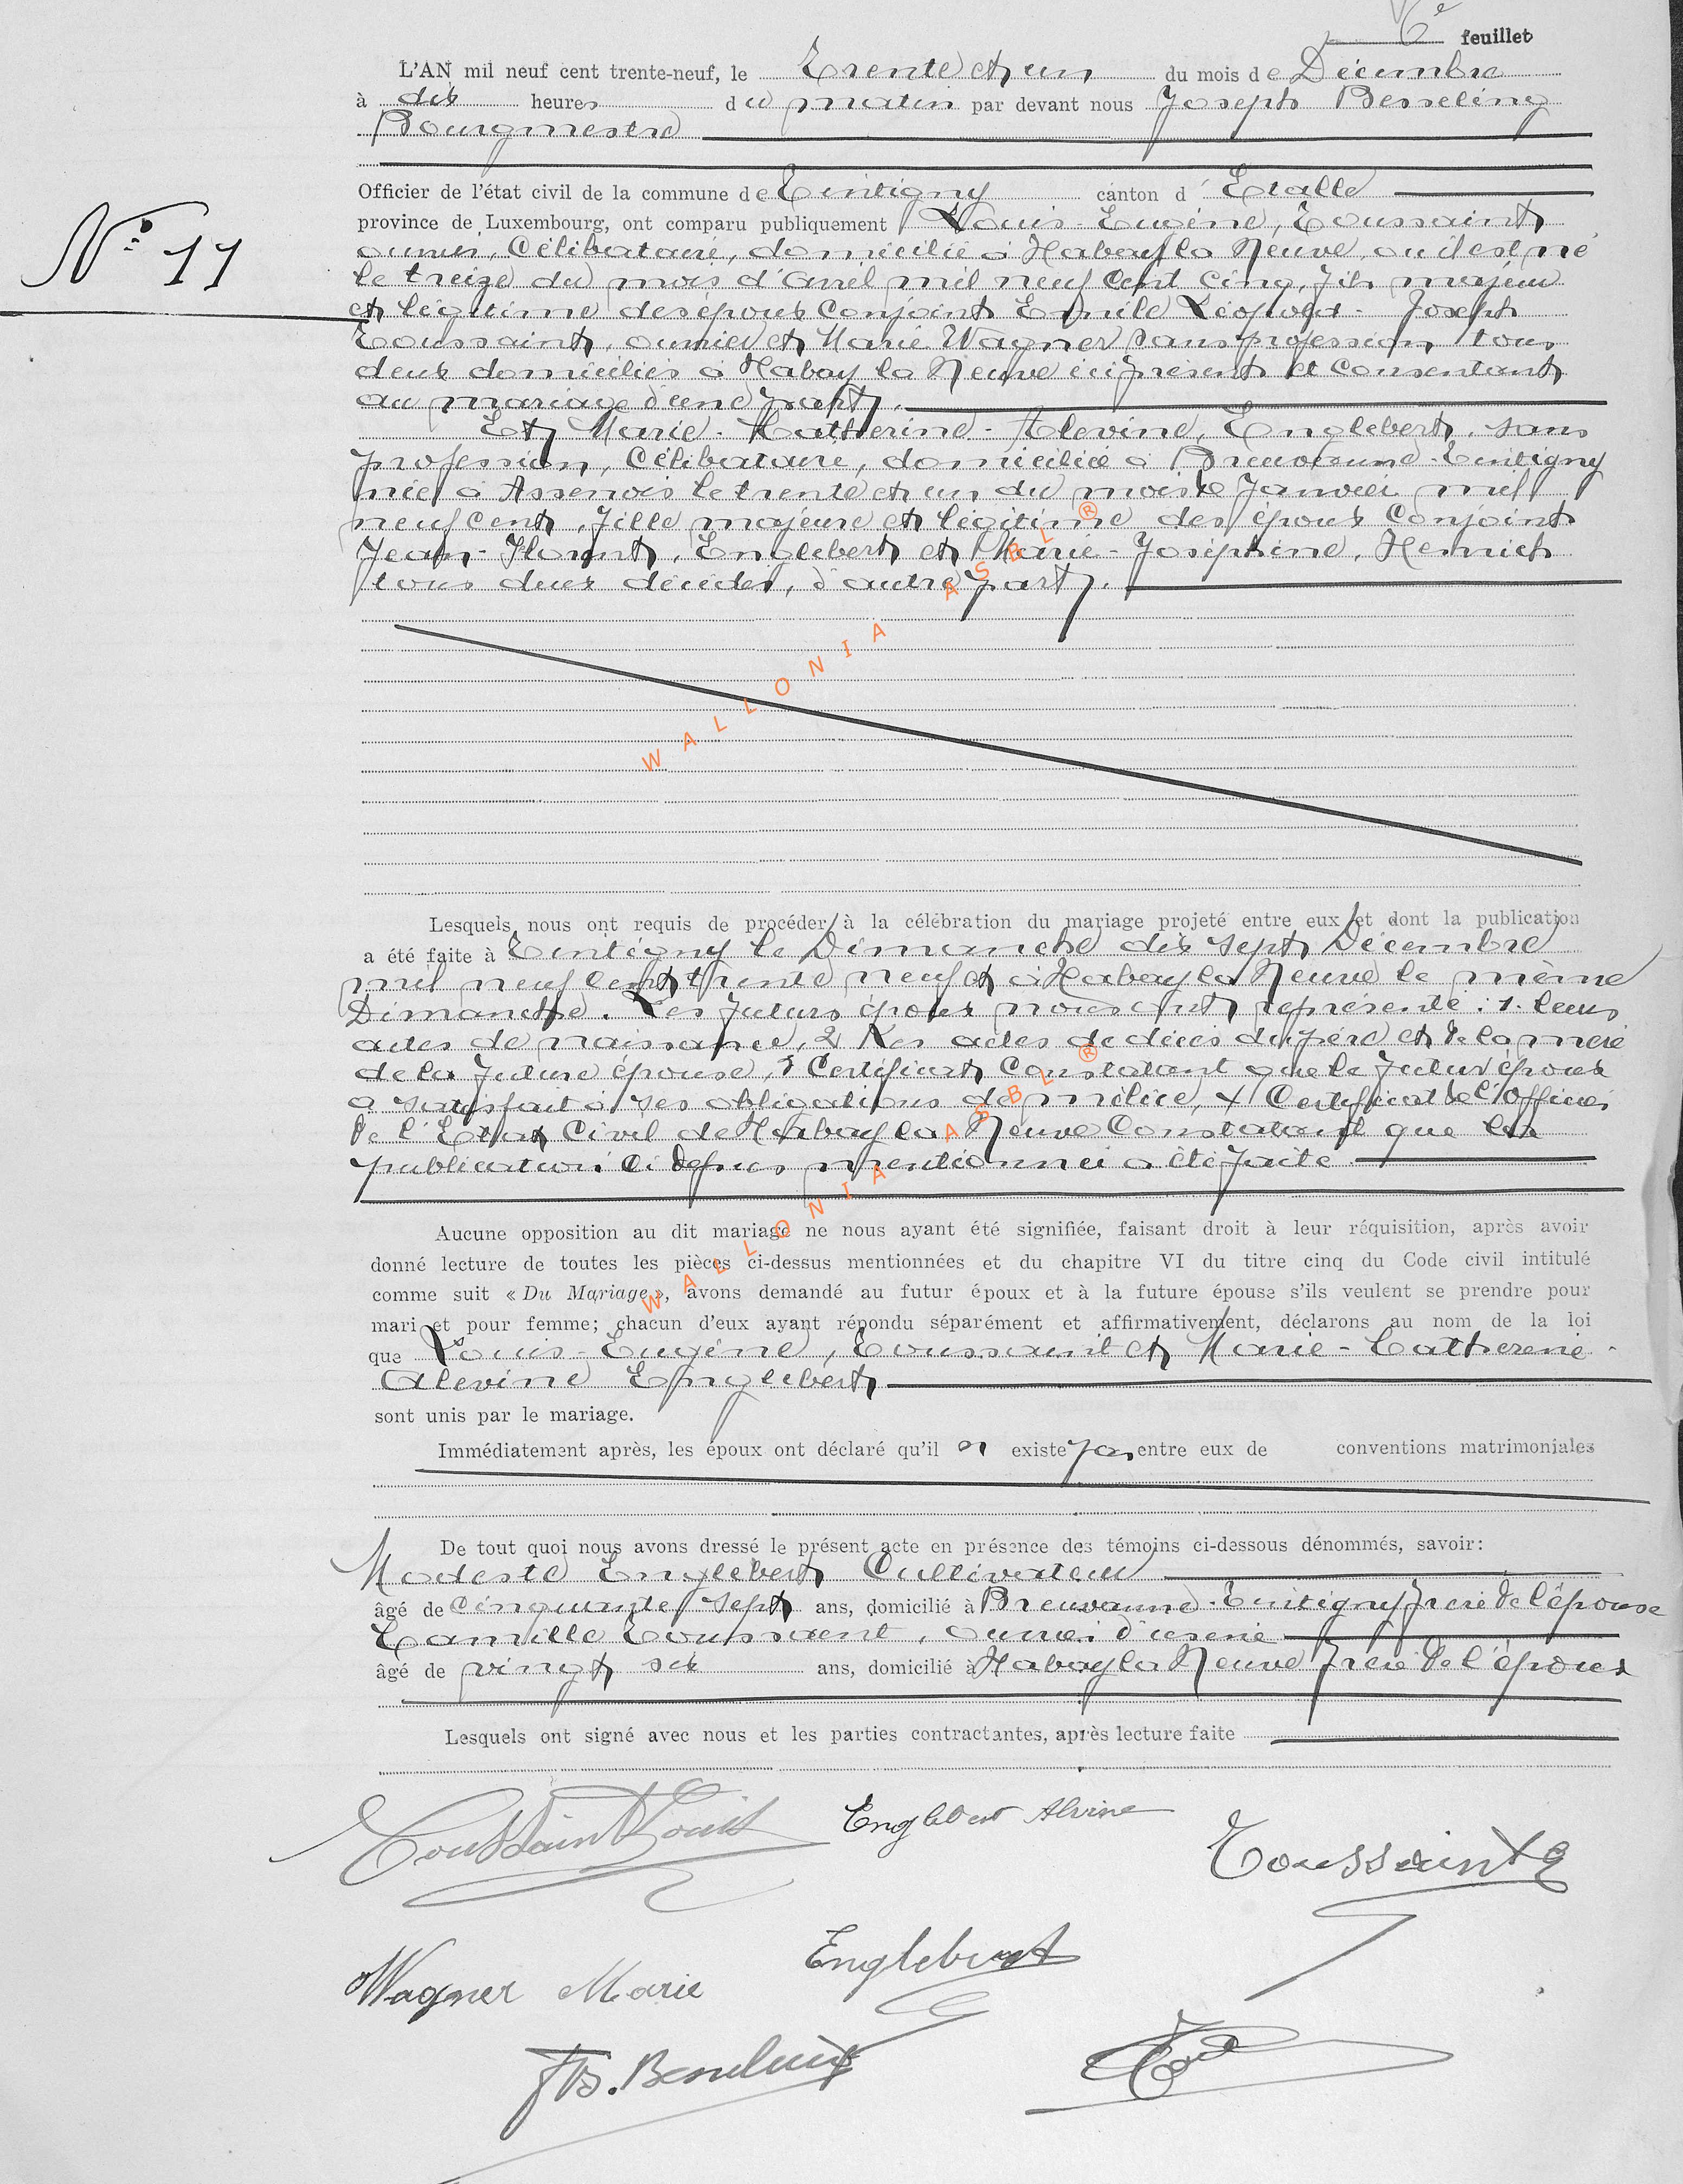 6e feuillet
L'AN mil neuf cent trente-neuf, le Trente et un du mois de Décembre
à dix heures du matin par devant nous Joseph Besseling
Bourgmestre
Officier de l'état civil de la commune de Tintigny canton d' Etalle
N° 11
province de Luxembourg, ont comparu publiquement Louis-Eugène, Toussaint
ouvrier, Célibataire, domicilié à Habay la Neuve, où il est né
le treize du mois d'avril mil neuf cent cinq, fils majeur
et légitime des époux conjoints Emile Léopold-Joseph
Toussaint, ouvrier et Marie Wagner sans profession tous
deux domiciliés à Habay la Neuve ici présents et consentants
au mariage d'une part.
Et Marie-Catherine-Alevine, Englebert, sans
profession, Célibataire, domiciliée à Breuvanne-Tintigny
née à Assenois le trente et un du mois de Janvier mil
neuf cent, fille majeure et légitime des époux conjoints
Jean-Florent, Englebert et Marie-Joséphine, Henrich
tous deux décédés, d'autre part.
Lesquels nous ont requis de procéder à la célébration du mariage projeté entre eux et dont la publication
a été faite à Tintigny le Dimanche dix sept Décembre
mil neuf cent trente neuf et à Habay la Neuve le même
Dimanche. Les futurs époux nous ont représenté : 1. leurs
actes de naissance, 2 Les actes de décès du père et de la mère
de la future épouse, 3 Certificat Constatant que le futur époux
a satisfait à ses obligations de milice, 4 Certificat de l'Officier
de l'Etat Civil de Habay la Neuve Constatant que la
publication ci dessus mentionnée a été faite
Aucune opposition au dit mariage ne nous ayant été signifiée, faisant droit à leur réquisition, après avoir
donné lecture de toutes les pièces ci-dessus mentionnées et du chapitre VI du titre cinq du Code civil intitulé
comme suit « Du Mariage », avons demandé au futur époux et à la future épouse s'ils veulent se prendre pour
mari et pour femme; chacun d'eux ayant répondu séparément et affirmativement, déclarons au nom de la loi
que Louis-Eugène, Toussaint et Marie-Catherine-
Alevine Englebert
sont unis par le mariage.
Immédiatement après, les époux ont déclaré qu'il n existe pas entre eux de conventions matrimoniales
De tout quoi nous avons dressé le présent acte en présence des témoins ci-dessous dénommés, savoir:
Modeste Englebert Cultivateur
âgé de cinquante sept ans, domicilié à Breuvanne-Tintigny frère de l'épouse
Camille Toussaint, Ouvrier d'usine
âgé de vingt six ans, domicilié à Habay la Neuve frère de l'époux
Lesquels ont signé avec nous et les parties contractantes, après lecture faite
Toussaint Louis
Englebert Alvine
Toussaint E
Wagner Marie
Englebert
Jos. Besseling
WALLONIA ASBL ®
WALLONIA ASBL ®